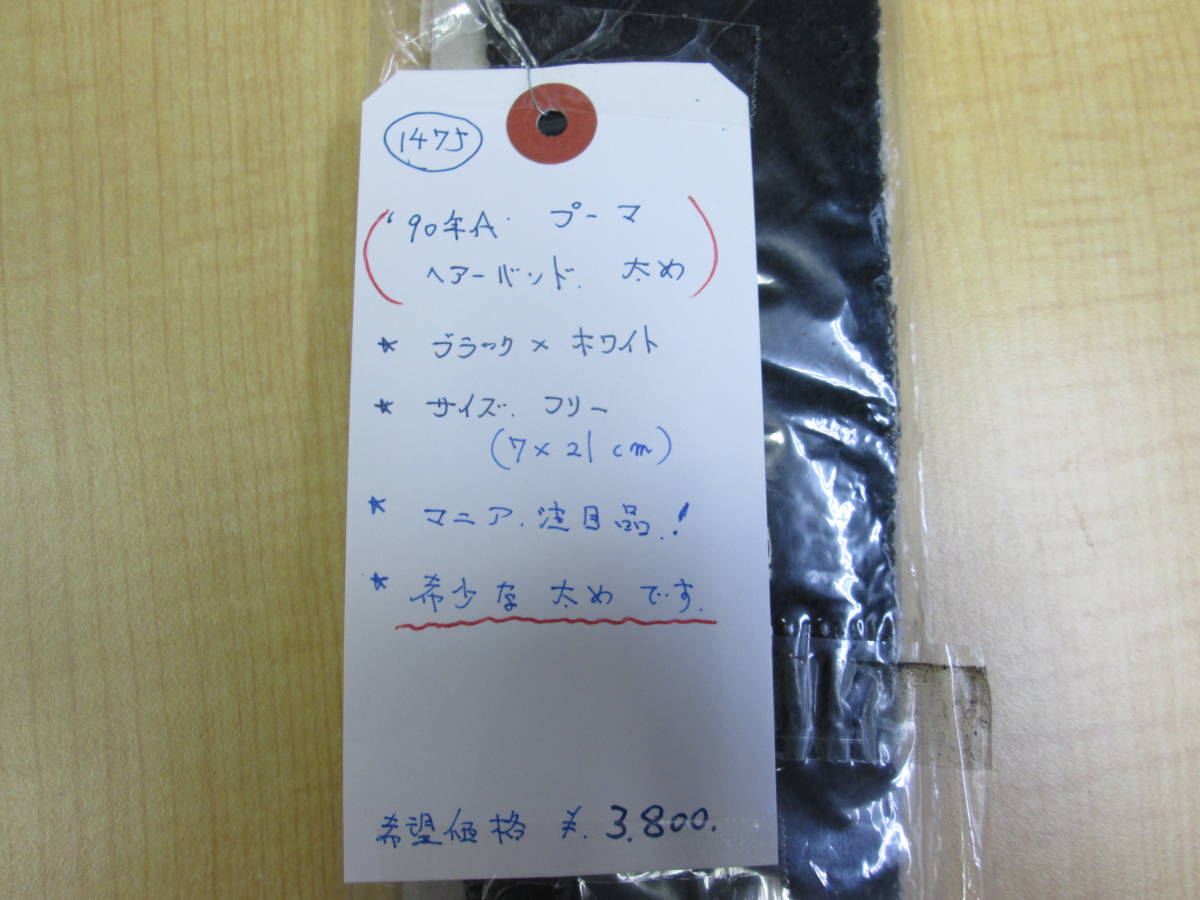 1475
'90年代 プーマ
ヘアーバンド. 太め
* ブラック × ホワイト
* サイズ. フリー
(7×21cm)
* マニア.注目品.!
* 希少な 太め です.
希望価格 ¥.3.800.